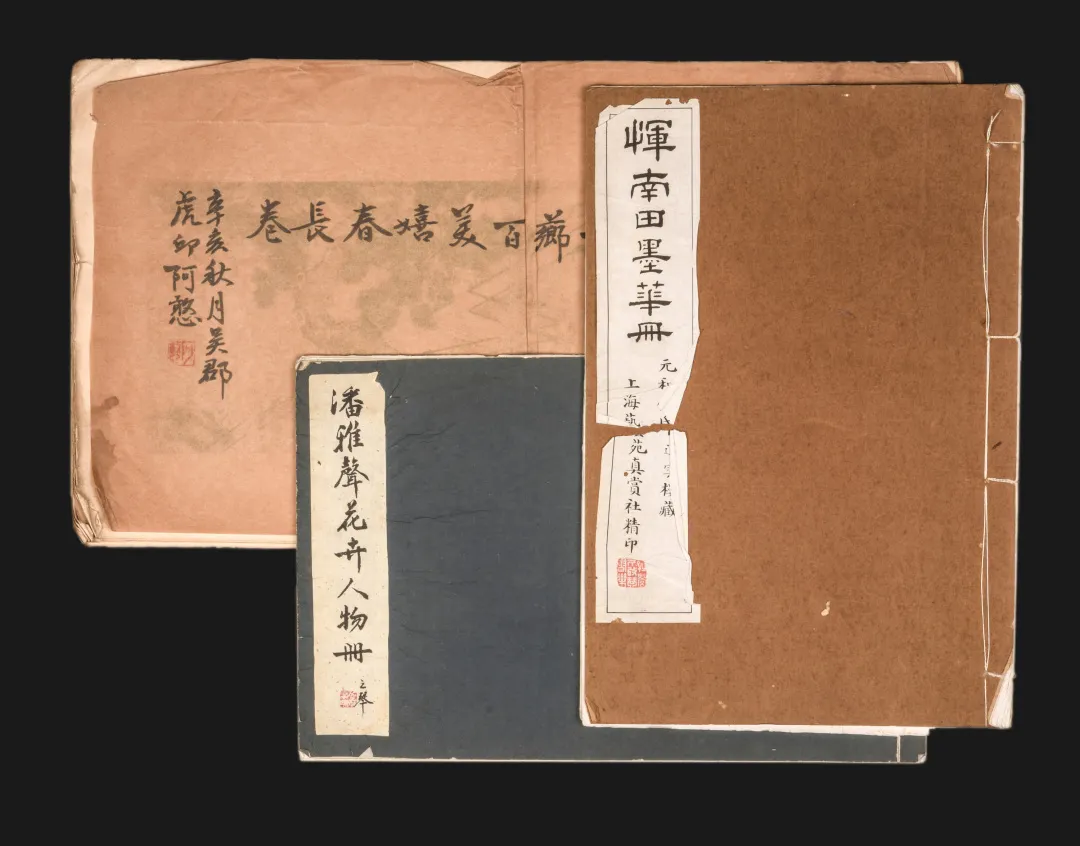 惲南田墨華冊
元 藏
上海 苑真賞社精印
薌百美嬉春長卷
辛亥秋月吳郡
虎邱阿憨
潘雅聲花卉人物冊